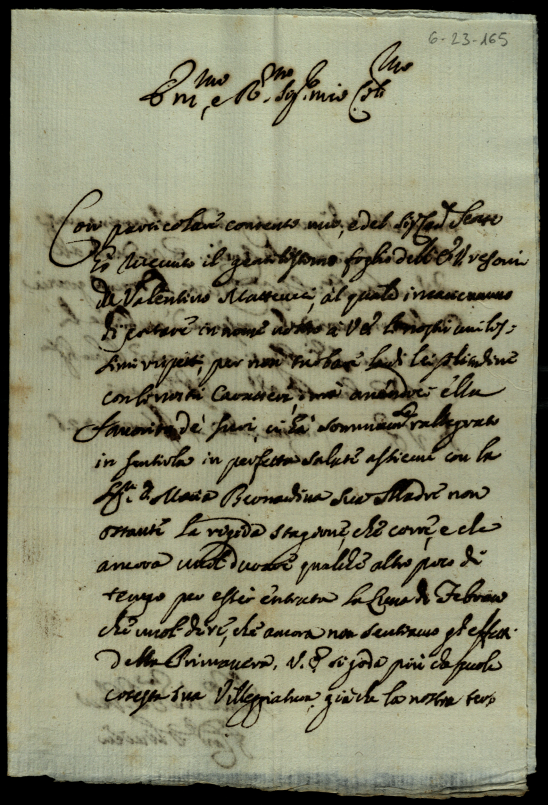 6-23-165
mo mo mo
Em, e R. Sig. mio Col
Con particolar contento mio, e del Sig. Cav.
ricevuto il gentilissimo foglio dell'
da Valentino Matteucci, al quale incaricammo
di portare in nome nostro a V. E. li nostri umilis-
simi rispetti, per non turbare la di lei solitudine
con li nostri Caratteri, ma avendoci ella
favorito de' suoi, ci ha sommam. rallegrato
in sentirla in perfetta salute assieme con la
Sig. D. Maria Bernardina sua Madre non
ostante la rigida stagione, che corre, e che
ancora vuol durare qualche altro poco di
tempo per esser entrata la Luna di Febraro
che vuol dire, che ancora non sentiamo gl'effetti
della Primavera. V. E. si goda più che puole
cotesta sua Villeggiatura, giache la nostra